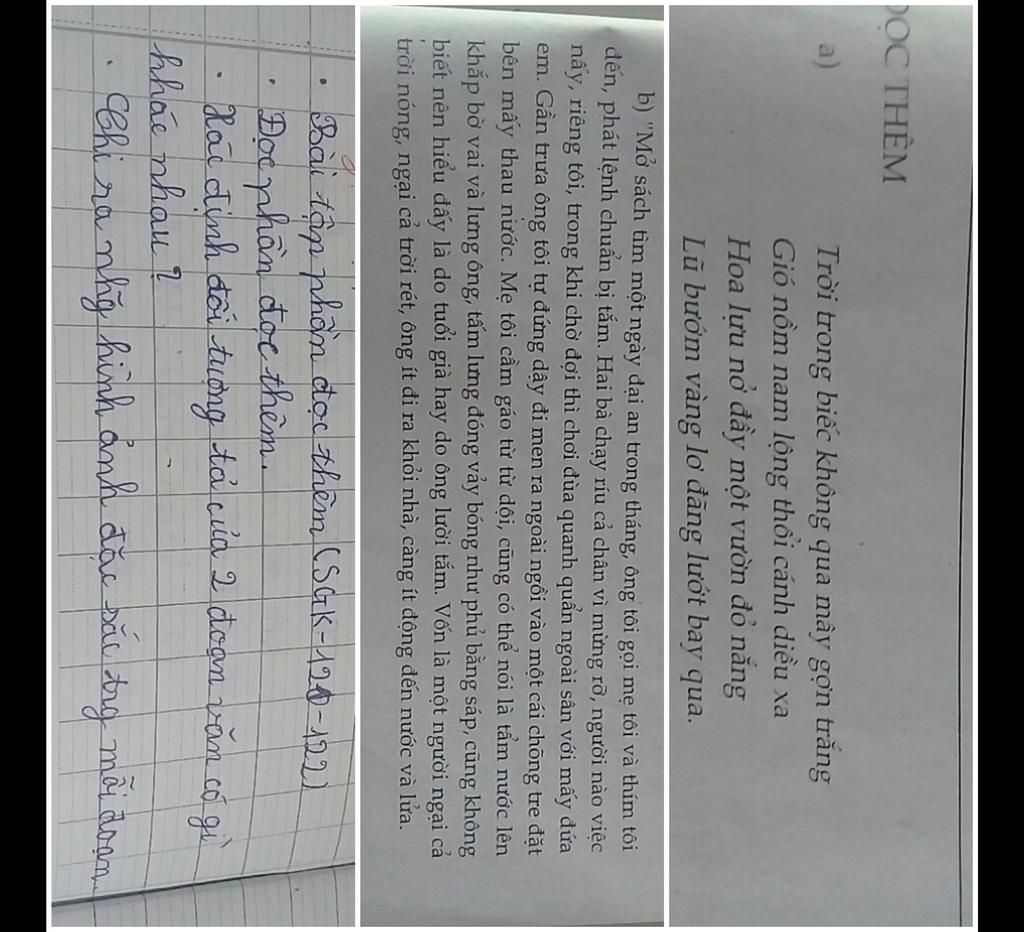 ĐỌC THÊM
a)
Trời trong biếc không qua mây gợn trắng
Gió nồm nam lộng thổi cánh diều xa
Hoa lựu nở đầy một vườn đỏ nắng
Lũ bướm vàng lơ đãng lướt bay qua.
b) "Mở sách tìm một ngày đại an trong tháng, ông tôi gọi mẹ tôi và thím tôi
đến, phát lệnh chuẩn bị tắm. Hai bà chạy ríu cả chân vì mừng rỡ, người nào việc
nấy, riêng tôi, trong khi chờ đợi thì chơi đùa quanh quẩn ngoài sân với mấy đứa
em. Gần trưa ông tôi tự đứng dậy đi men ra ngoài ngồi vào một cái chõng tre đặt
bên mấy thau nước. Mẹ tôi cầm gáo từ từ dội, cũng có thể nói là tẩm nước lên
khắp bờ vai và lưng ông, tấm lưng đóng vảy bóng như phủ bằng sáp, cũng không
biết nên hiểu đấy là do tuổi già hay do ông lười tắm. Vốn là một người ngại cả
trời nóng, ngại cả trời rét, ông ít đi ra khỏi nhà, càng ít động đến nước và lửa.
• Bài tập phần đọc thêm (SGK-120-122)
• Đọc phần đọc thêm.
• Xác định đối tượng tả của 2 đoạn văn có gì
khác nhau?
• Chỉ ra nhg hình ảnh đặc sắc trg mỗi đoạn.